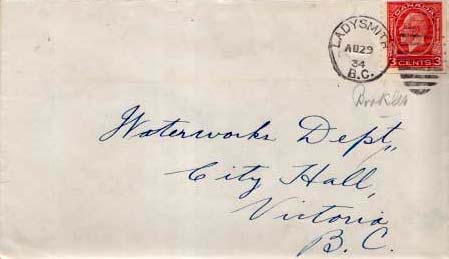 LADYSMITH
AU 29
34
B.C.
CANADA
3 CENTS 3
Booklet
Waterworks Dept.,
City Hall,
Victoria
B. C.